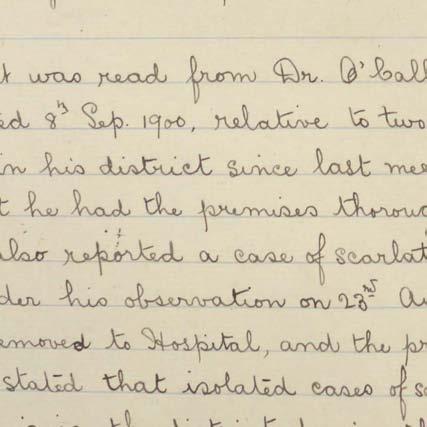 t was read from Dr. O'Call
ed 8th Sep. 1900, relative to two
in his district since last mee
t he had the premises thorou
also reported a case of scarlat
der his observation on 23rd Au
emoved to Hospital, and the pr
stated that isolated cases of sc